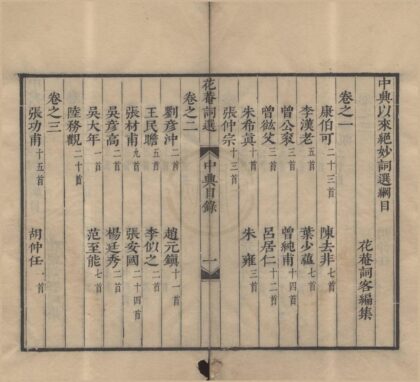 中興以來絕妙詞選綱目
花菴詞客編集
卷之一
康伯可二十三首 陳去非七首
李漢老五首 葉少蘊七首
曾公袞三首 曾純甫十四首
曾紘父三首 呂居仁十二首
朱希真十首 朱雍三首
張仲宗十三首
花菴詞選 中興目錄 一
卷之二
劉彥沖二首 趙元鎮十一首
王民瞻五首 李似之二首
張材甫九首 張安國二十四首
吳彥高二首 楊廷秀一首
吳大年一首 范至能七首
陸務觀二十首
卷之三
張功甫十五首 胡仲任一首